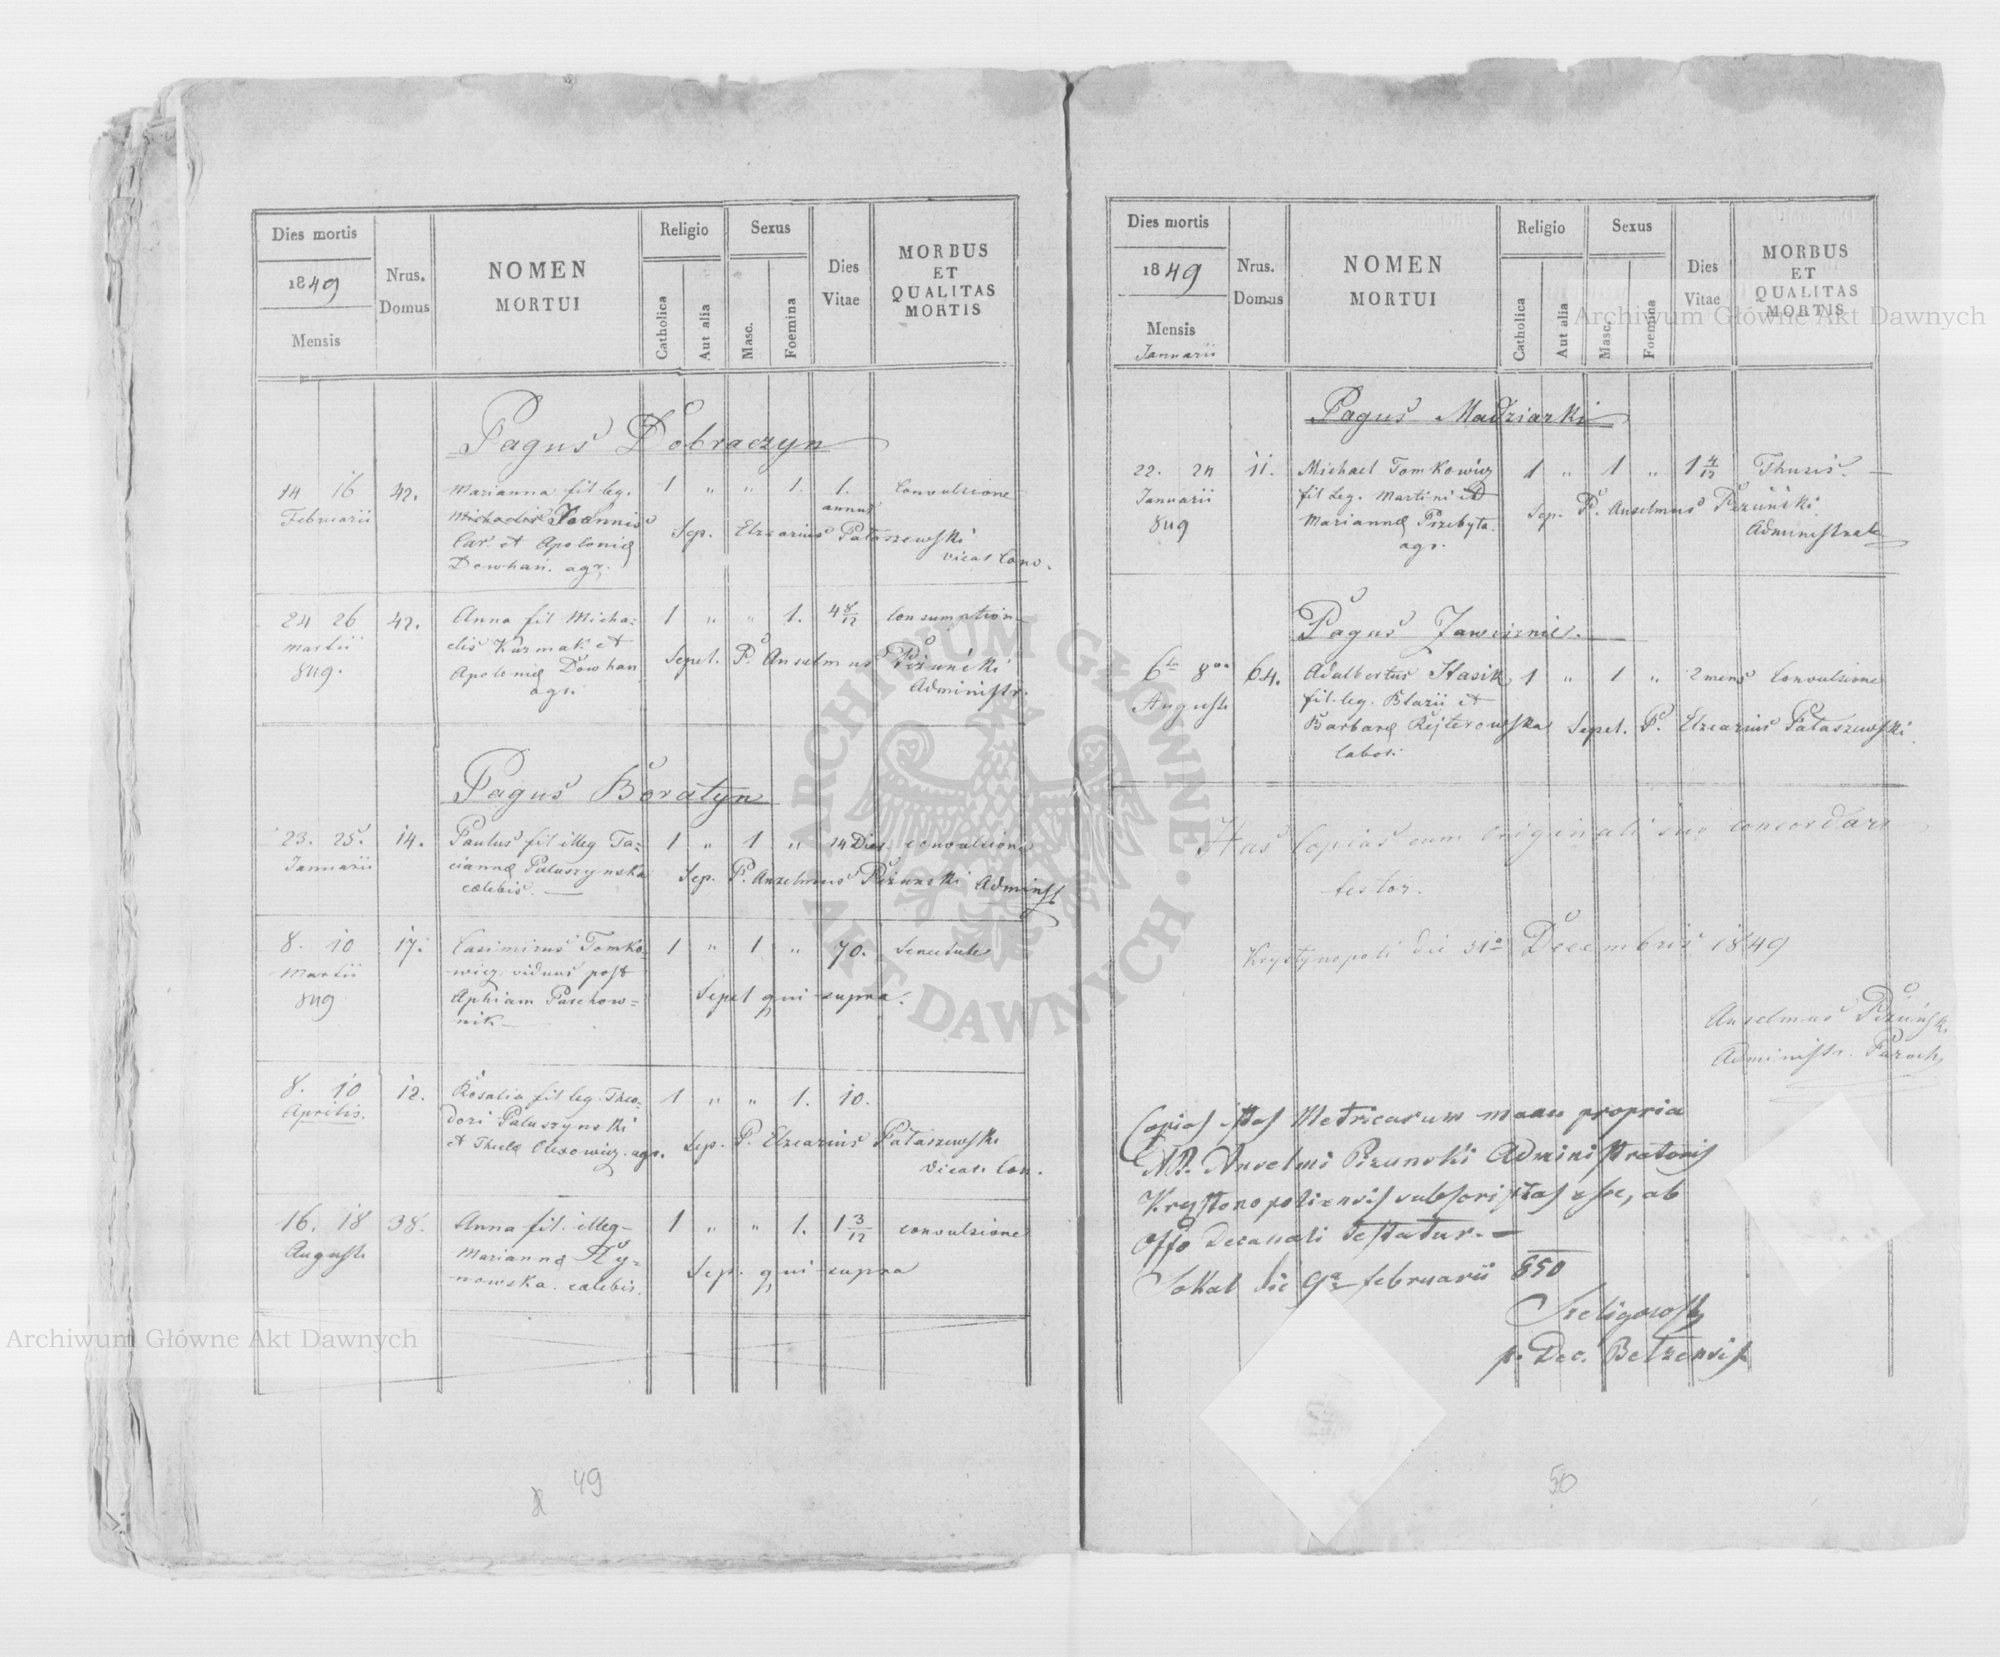 Dies mortis
1849
Mensis
Nrus. Domus
NOMEN
MORTUI
Religio
Catholica
Aut alia
Sexus
Masc.
Foemina
Dies
Vitae
MORBUS
ET
QUALITAS
MORTIS
Pagus Dobraczyn
14 16 42. Marianna fil leg. 1 " " 1. 1. Convulsione
Februarii Michaelis Joannis annus
Car. et Apoloniæ Sep. Elzearius Pataszewski
Dowhan. agr. vicar Conv.
24 26 42. Anna fil Micha= 1 " " 1. 4 8/12 Consumption
Martii elis Kuzmak et Sepel. P. Anselmus Pizunski
849. Apoloniæ Dowhan Administr.
agr.
Pagus Boratyn
23. 25. 14. Paulus fil illeg Ta= 1 " 1 " 14 Dies convulsione
Januarii cianna Paluszynska Sep. P. Anselmus Pizunski Administ
cælebis.
8. 10 17. Casimirus Tomko= 1 " 1 " 70. Senectute
Martii wicz viduus post
849 Aphiam Paschow= Sepel qui supra.
nik
8. 10 12. Rosalia fil leg. Theo= 1 " " 1. 10.
Aprilis. dori Paluszynski
et Theclæ Olexowicz. agr. Sep. P. Elzearius Pataszewski
Vicar. Con.
16. 18 38. Anna fil. illeg 1 " " 1. 1 3/12 convulsione
Augusti Mariannæ Hy=
nowska. cælebis. Sep. qui supra
49
Dies mortis
1849
Mensis
Januarii
Nrus.
Domus
NOMEN
MORTUI
Religio
Catholica
Aut alia
Sexus
Masc.
Foemina
Dies
Vitae
MORBUS
ET
QUALITAS
MORTIS
Pagus Madziarki
22. 24 11. Michael Tomkowicz 1 " 1 " 1 4/12 Thusis.
Januarii fil Leg. Martini et Sep. P. Anselmus Pizuński
849 Mariannæ Przebyta. Administrator
agr.
Pagus Jawisznie.
6ta 8va 64. Adalbertus Stasik 1 " 1 " 2 mens Convulsione
Augusti fil. leg. Blazii et
Barbaræ Rejterowska Sepel. P. Elzearius Pataszewski
labor.
Has Copias cum Originali suo concordare
testor.
Krystynopoli die 31a Decembris 1849
Anselmus Pizuński
Administr. Paroch.
Copias istas Metricarum manu propria
AR. Anselmi Pizunski Administratoris
Krystonopoliensis subscriptas esse, ab
Offo Decanali testatur.
Sokal die 9a februarii 850
Szeligowski
p. Dec. Belzensis
50
Archiwum Główne Akt Dawnych
Archiwum Główne Akt Dawnych
ARCHIWUM GŁÓWNE AKT DAWNYCH